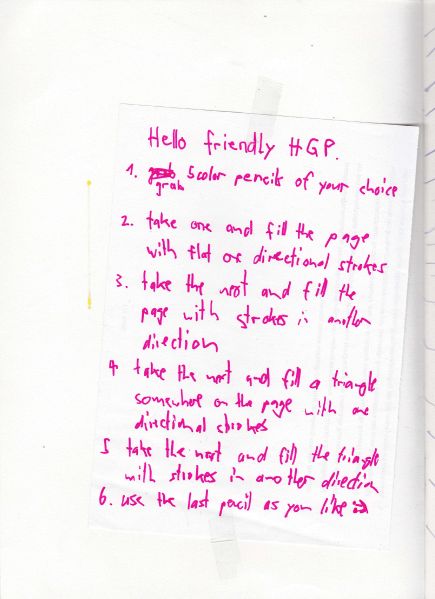 Hello friendly HGP.
1. grab 5 color pencils of your choice
2. take one and fill the page
with flat one directional strokes
3. take the next and fill the
page with strokes in another
direction
4 take the next and fill a triangle
somewhere on the page with one
directional strokes
5 take the next and fill the triangle
with strokes in another direction
6. use the last pencil as you like :)